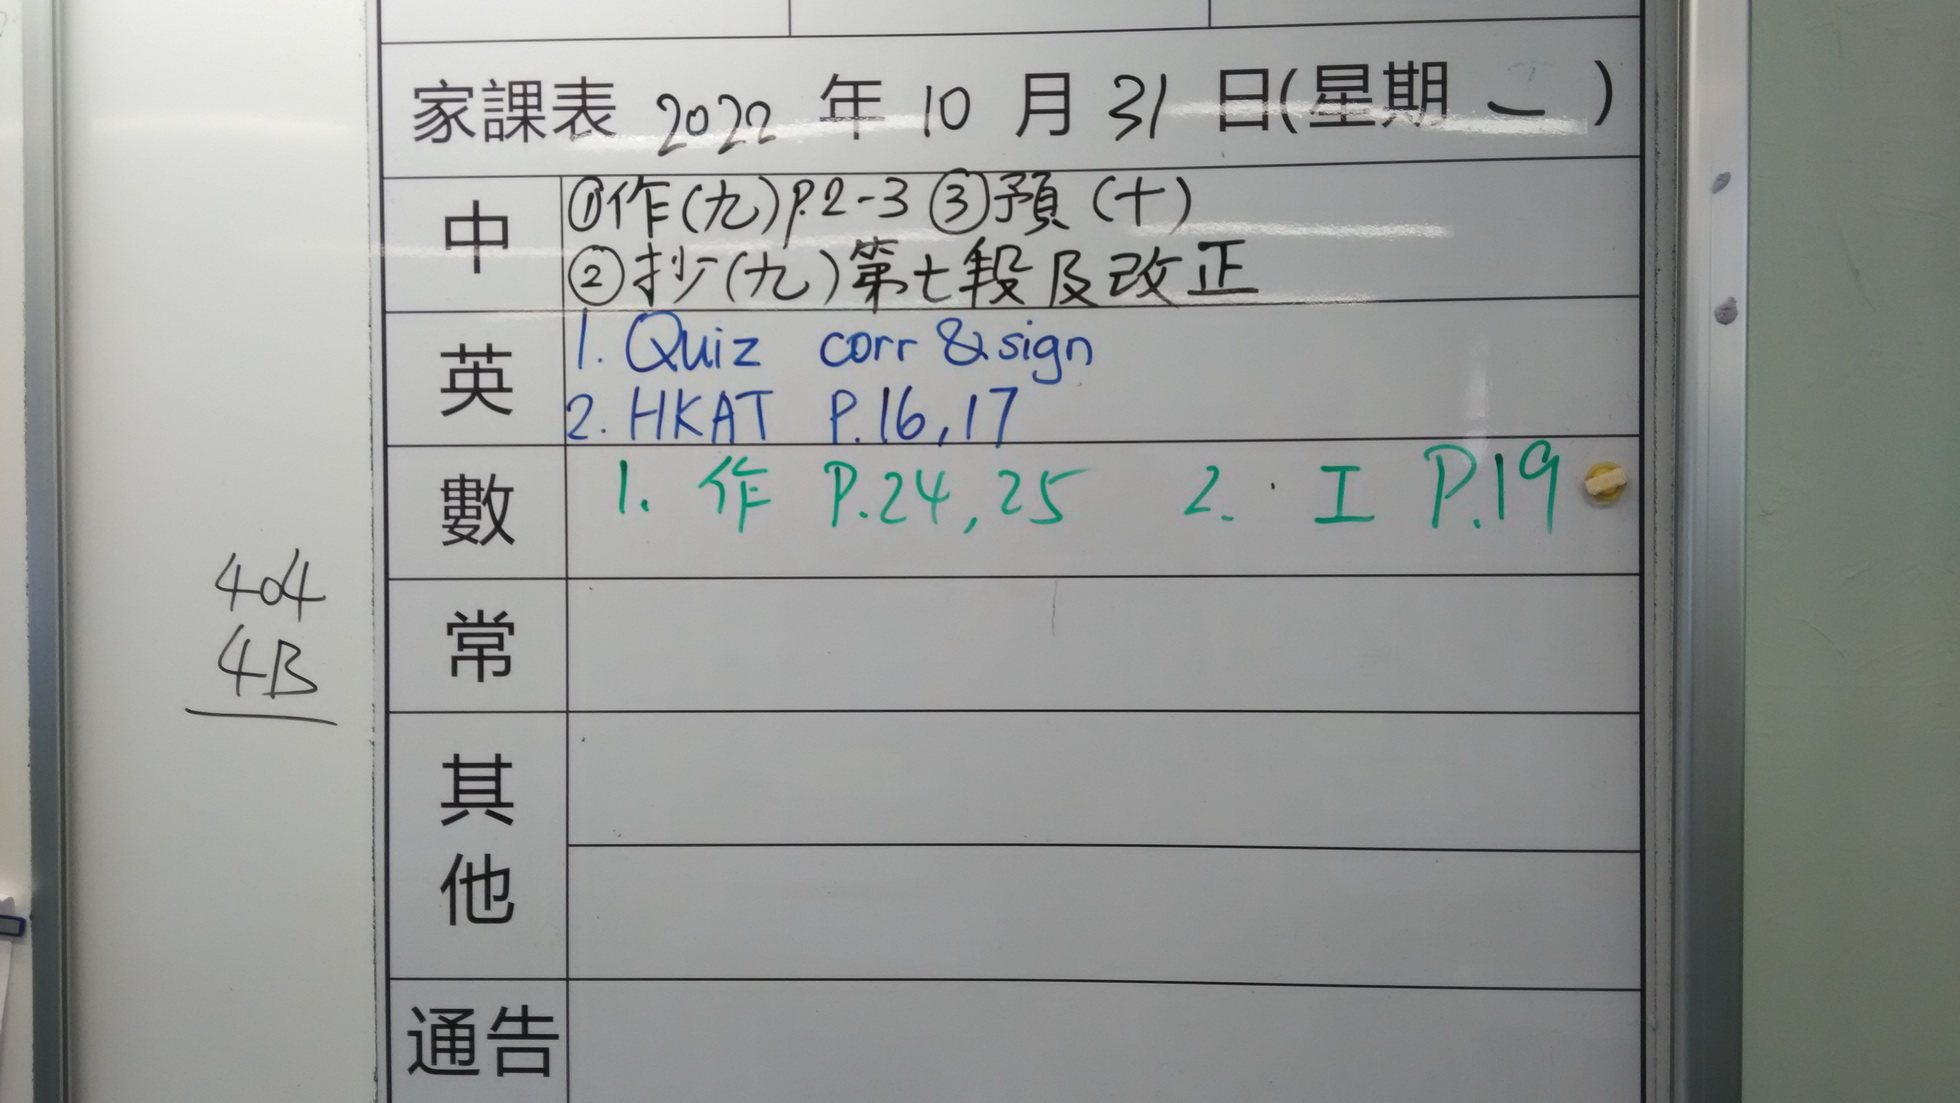 家課表 2022 年 10 月 31 日(星期 一 )
中 ①作(九)P.2-3 ③預(十)
②抄(九)第七段及改正
英 1. Quiz corr & sign
2. HKAT P.16,17
數 1. 作 P.24,25 2. I P.19
404
4B
常
其他
通告